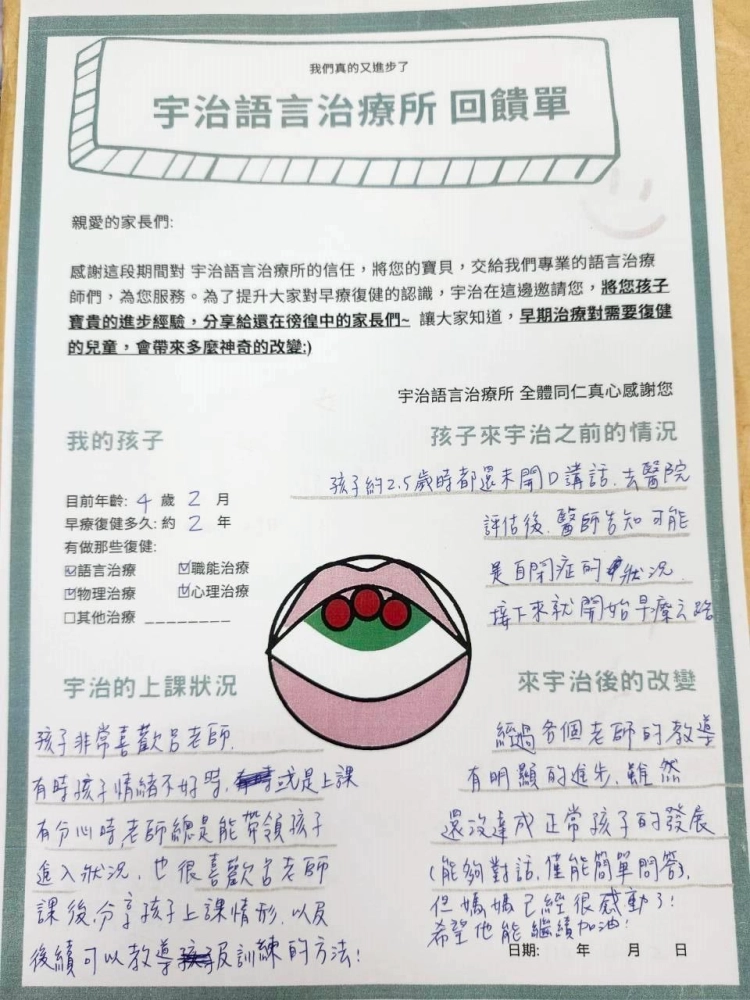 我們真的又進步了
宇治語言治療所 回饋單
親愛的家長們:
感謝這段期間對 宇治語言治療所的信任，將您的寶貝，交給我們專業的語言治療
師們，為您服務。為了提升大家對早療復健的認識，宇治在這邊邀請您，將您孩子
寶貴的進步經驗，分享給還在徬徨中的家長們~ 讓大家知道，早期治療對需要復健
的兒童，會帶來多麼神奇的改變:)
宇治語言治療所 全體同仁真心感謝您
我的孩子
目前年齡: 4 歲 2 月
早療復健多久: 約 2 年
有做那些復健:
☑語言治療 ☑職能治療
☑物理治療 ☑心理治療
☐其他治療 ________
孩子來宇治之前的情況
孩子約2.5歲時都還未開口講話.去醫院
評估後.醫師告知可能
是自閉症的狀況.
接下來就開始早療之路
宇治的上課狀況
孩子非常喜歡呂老師.
有時孩子情緒不好時,或是上課
有分心時,老師總是能帶領孩子
進入狀況.也很喜歡呂老師
課後,分享孩子上課情形.以及
後續可以教導及訓練的方法!
來宇治後的改變
經過各個老師的教導
有明顯的進步.雖然
還沒達成正常孩子的發展
(能夠對話,僅能簡單問答),
但媽媽已經很感動了!
希望他能繼續加油!
日期: 年 月 日